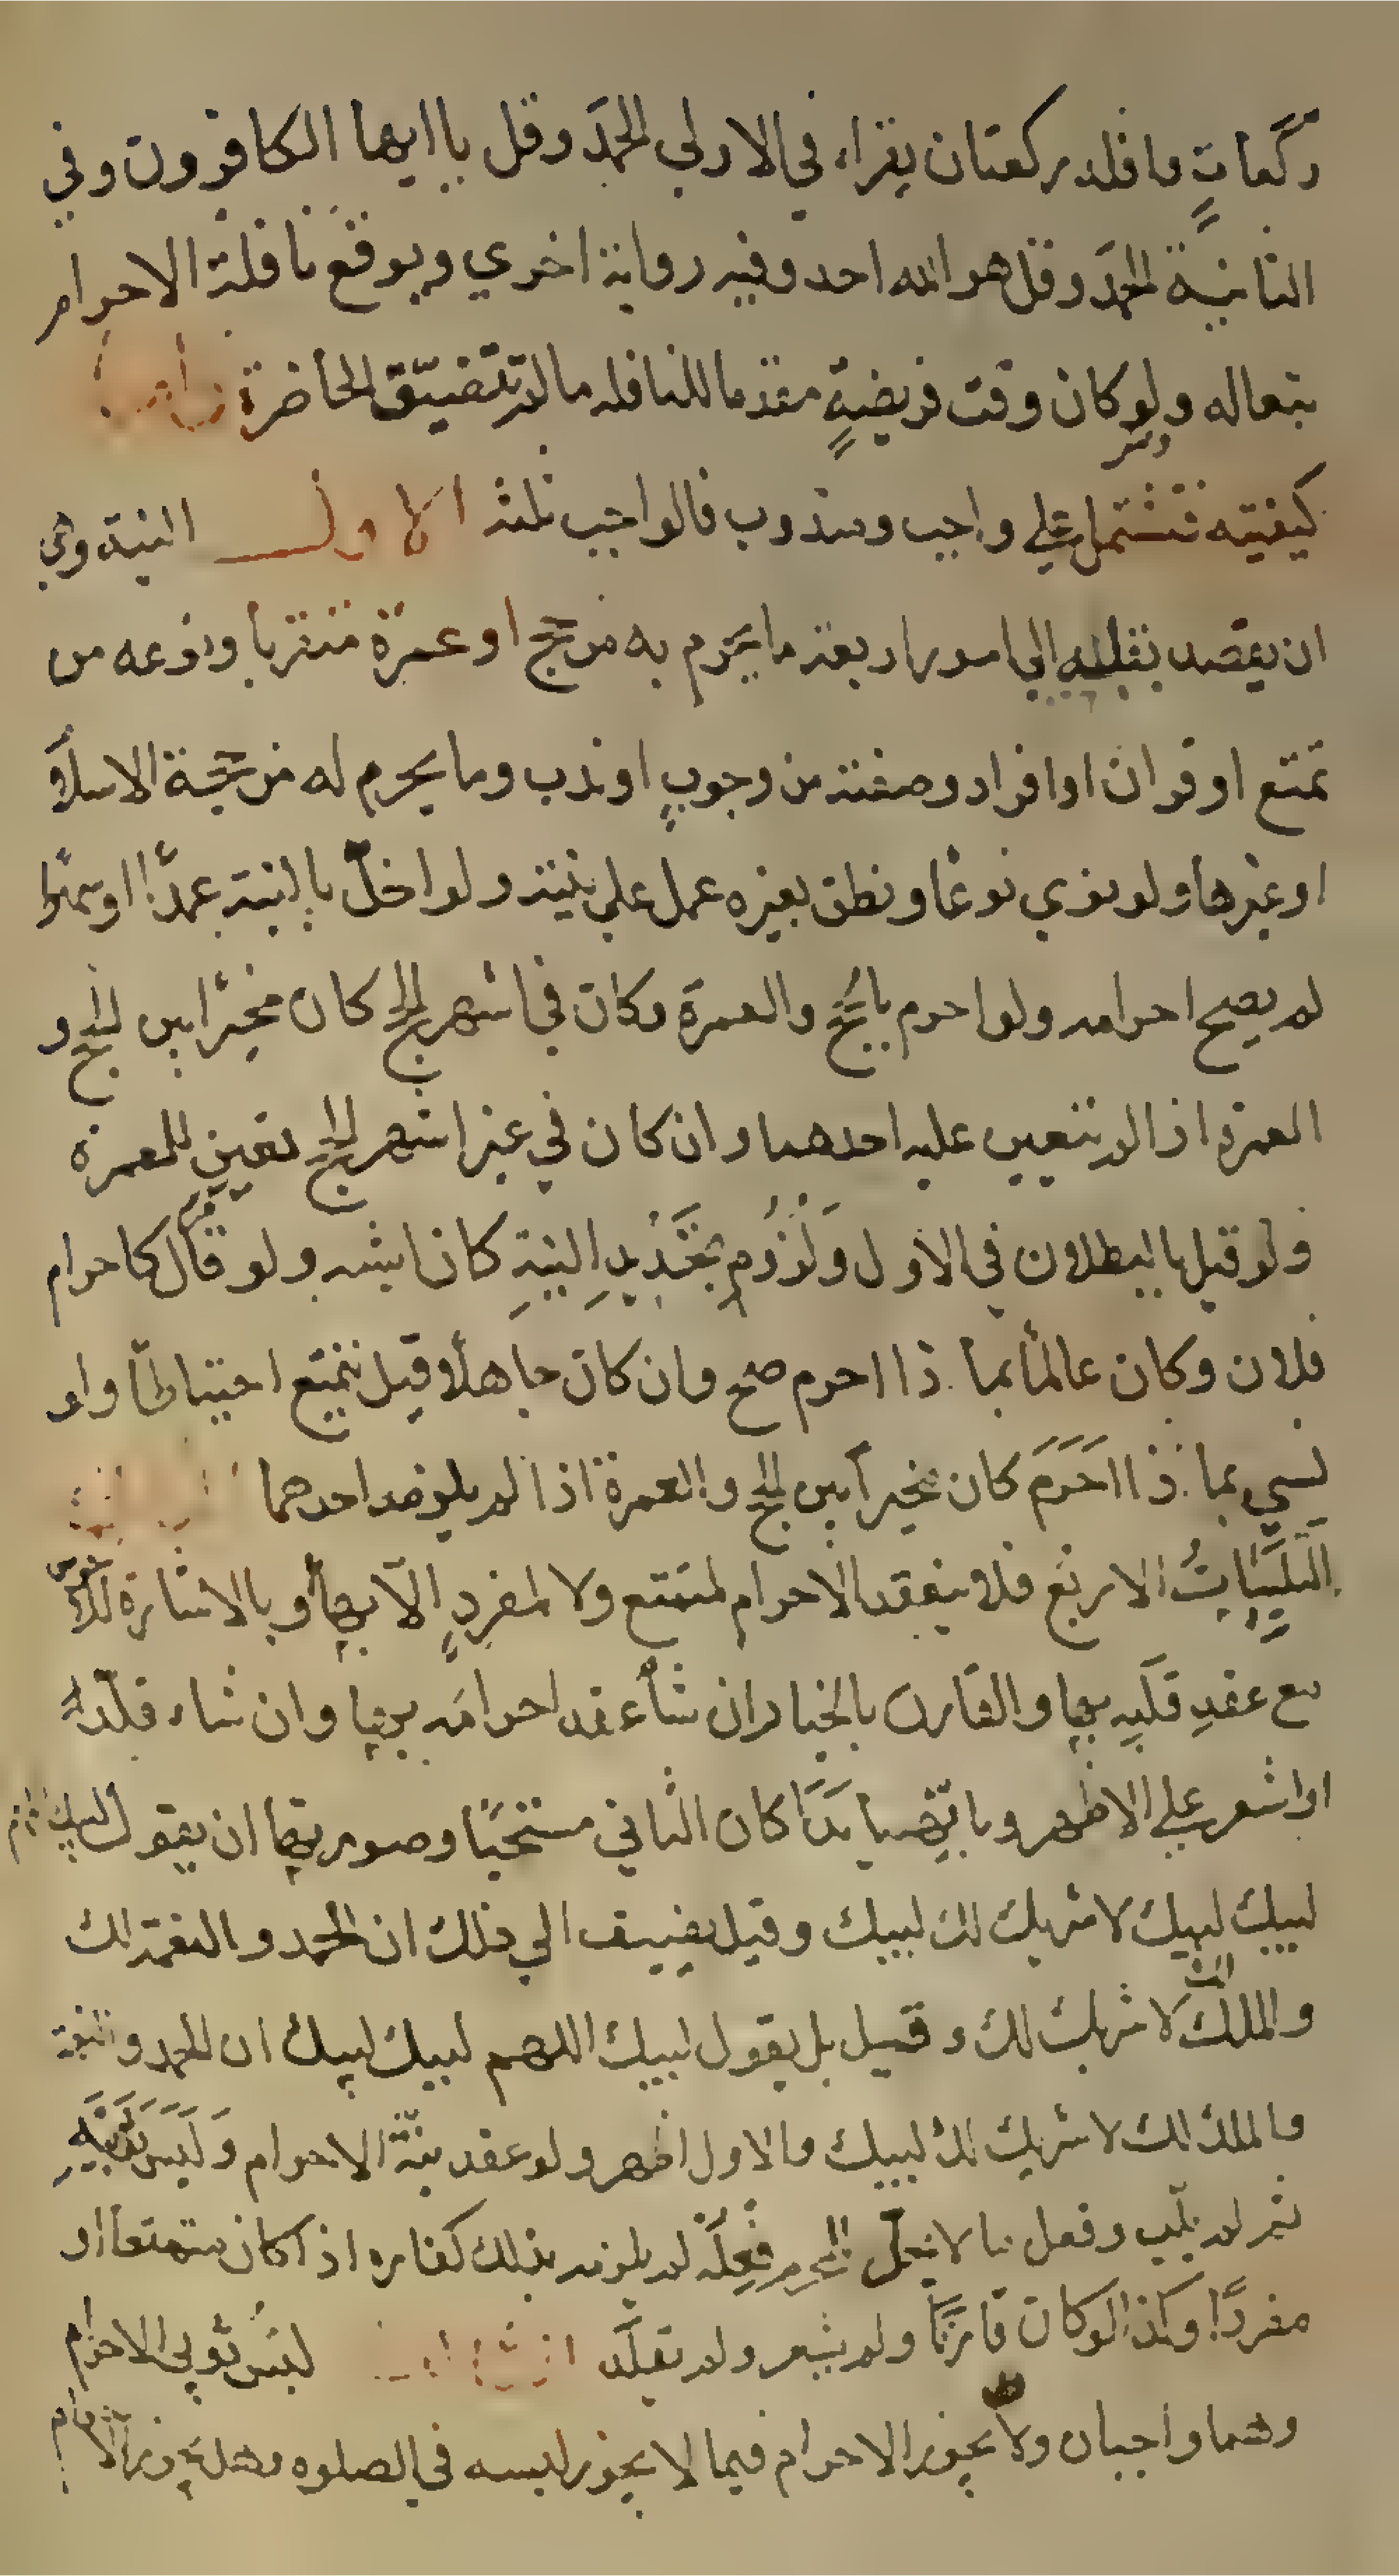 ركعاتٍ واقله ركعتان يقراء في الاولي الحمدَ وقل ياايها الكافرون وفي
الثانية الحمدَ وقل هو الله احد وفيه رواية اخري ويوقع نافلة الاحرام
تبعاله ولو كان وقت فريضةٍ مقدما للنافله مالم تتضيّق الحاضرة واما
كيفيته فتشتمل علي واجب ومندوب فالواجب ثلثه الاول النية وهي
ان يقصد بقلبه الي امور اربعة ما يحرم به من حج او عمرة متقربا ونوعه من
تمتع او قران او افراد وصفته من وجوبٍ او ندب وما يحرم له من حجة الاسلام
او غيرها ولو نوي نوعًا ونطق بغيره عمل علي نيته ولو اخلّ بالنية عمدًا او سهوًا
لم يصح احرامه ولو احرم بالحج والعمرة وكان في اشهر الحج كان مخيرًا بين الحج و
العمرة اذا لم يتعين عليه احدهما وان كان في غير اشهر الحج تعين للعمرة
ولو قيل بالبطلان في الاول ولزوم تجديدِ النيةِ كان اشبه ولو قال كاحرام
فلان وكان عالمًا بما ذا احرم صح وان كان جاهلًا قيل يتمتع احتياطًا ولو
نسي بما ذا احرَمَ كان مخيرًا بين الحج والعمرة اذا لم يلزمه احدهما
التَلبيَاتُ الاربع فلا ينعقد الاحرام لمتمتع ولا لمفردٍ الّا بها او بالاشارة للاخرس
مع عقدِ قلبِه بها والقارن بالخيار ان شاء عقد احرامَه بها وان شاء قلّد
او اشعر علي الاظهر وبايّهما بَدَا كان الثاني مستحبًا وصورتها ان يقول لبيك اللهم
لبيك لبيك لا شريك لك لبيك وقيل يضيف الي ذلك ان الحمد والنعمة لك
والملك لك لا شريك لك وقيل بل يقول لبيك اللهم لبيك لبيك ان الحمد والنعمة
والملك لك لا شريك لك لبيك والاول اظهر ولو عقد نيّة الاحرام وَلَبِسَ ثوبَيْهِ
ثم لم يلّب وفعل ما لا يحلّ للمحرم فعِلَه لم يلزمه بذلك كفاره اذا كان متمتعا او
مفردًا وكذا لو كان قارنًا ولم يشعر ولم يقلّد الثالث لبس ثوبي الاحرام
وهما واجبان ولا يجوز الاحرام فيما لا يجوز لبسه في الصلوه وهل يجوز الاحرام